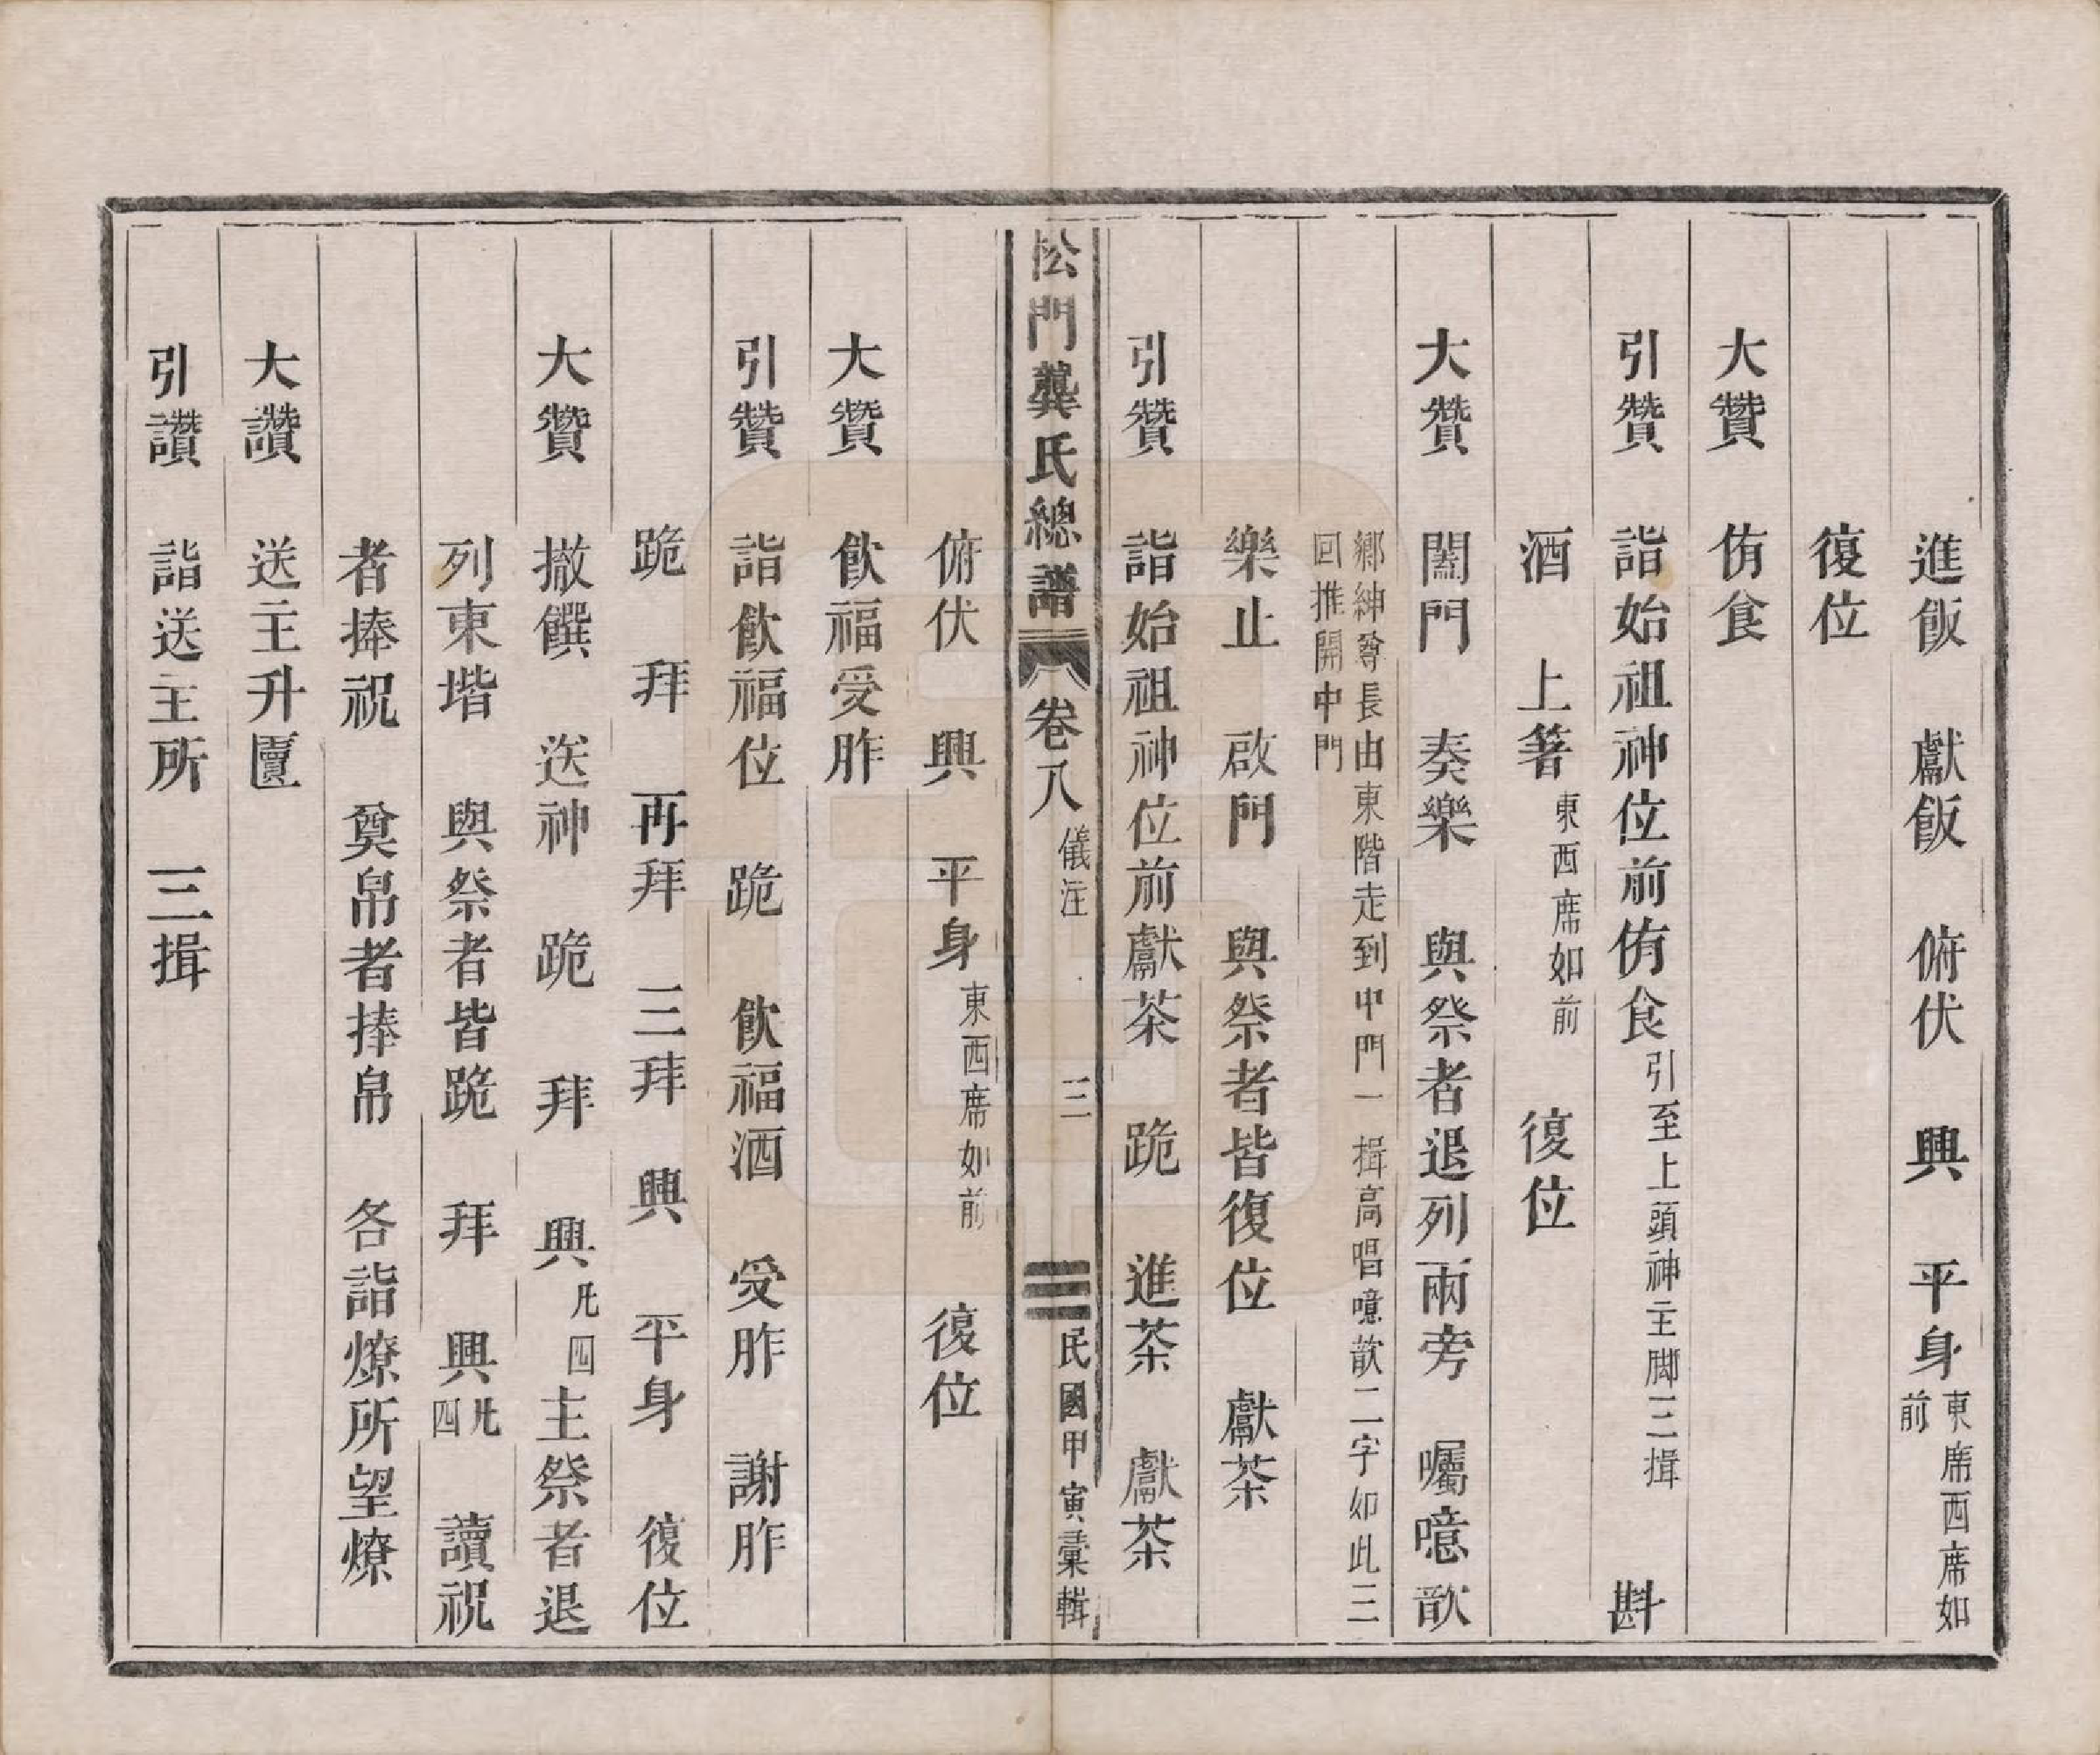 進飯　獻飯　俯伏　興　平身東席西席如前
復位
大贊　侑食
引贊　詣始祖神位前侑食引至上頭神主脚三揖　斟
酒　上箸東西席如前　復位
大贊　闔門　奏樂　與祭者退列兩旁　囑噫歆
鄉紳尊長由東階走到中門一揖高唱噫歆二字如此三
回推開中門
樂止　啟門　與祭者皆復位　獻茶
引贊　詣始祖神位前獻茶　跪　進茶　獻茶
松門龔氏總譜　卷八　儀注　三　民國甲寅彙輯
俯伏　興　平身東西席如前　復位
大贊　飲福受胙
引贊　詣飲福位　跪　飲福酒　受胙　謝胙
跪　拜　再拜　三拜　興　平身　復位
大贊　撤饌　送神　跪　拜　興凡四主祭者退
列東堦　與祭者皆跪　拜　興凡四　讀祝
者捧祝　奠帛者捧帛　各詣燎所望燎
大讚　送主升匵
引讚　詣送主所　三揖